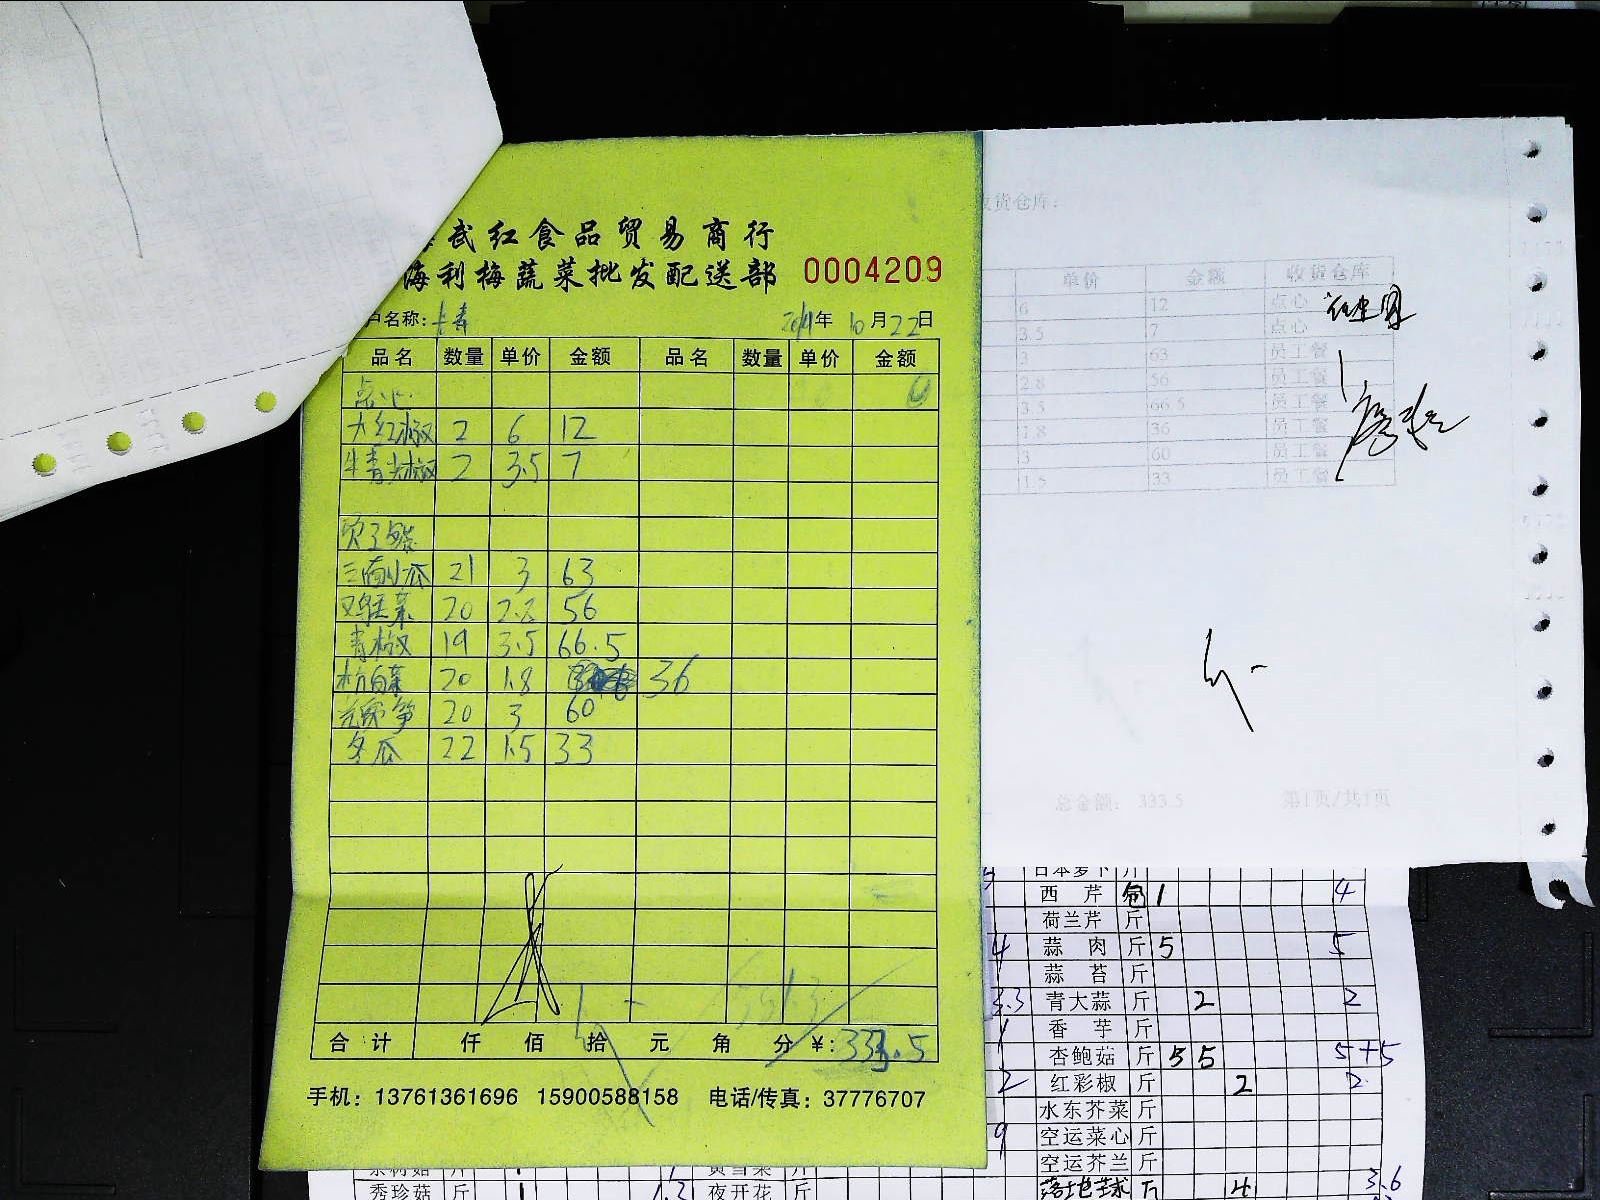 武红食品贸易商行
海利梅蔬菜批发配送部 0004209
户名称:
年 10月22日
品名 数量 单价 金额 品名 数量 单价 金额
点心
大红椒 2 6 12
牛青尖椒 2 3.5 7
21 3 63
20 2.8 56
青椒 19 3.5 66.5
杭白菜 20 1.8 36
20 3 60
冬瓜 22 1.5 33
合计 仟 佰 拾 元 角 分 ¥: 333.5
手机: 13761361696 15900588158 电话/传真: 37776707
收货仓库:
单价 金额 收货仓库
6 12 点心
3.5 7 点心
3 63 员工餐
2.8 56 员工餐
3.5 66.5 员工餐
1.8 36 员工餐
3 60 员工餐
1.5 33 员工餐
总金额: 333.5 第1页/共1页
日本萝卜 斤
西芹 包 1 4
荷兰芹 斤
4 蒜肉 斤 5 5
蒜苔 斤
3.3 青大蒜 斤 2 2
1 香芋 斤
杏鲍菇 斤 5 5 5+5
2 红彩椒 斤 2 2
水东芥菜 斤
9 空运菜心 斤
空运芥兰 斤
落地球 斤 4 3.6
秀珍菇 斤 1 1.2 夜开花 斤